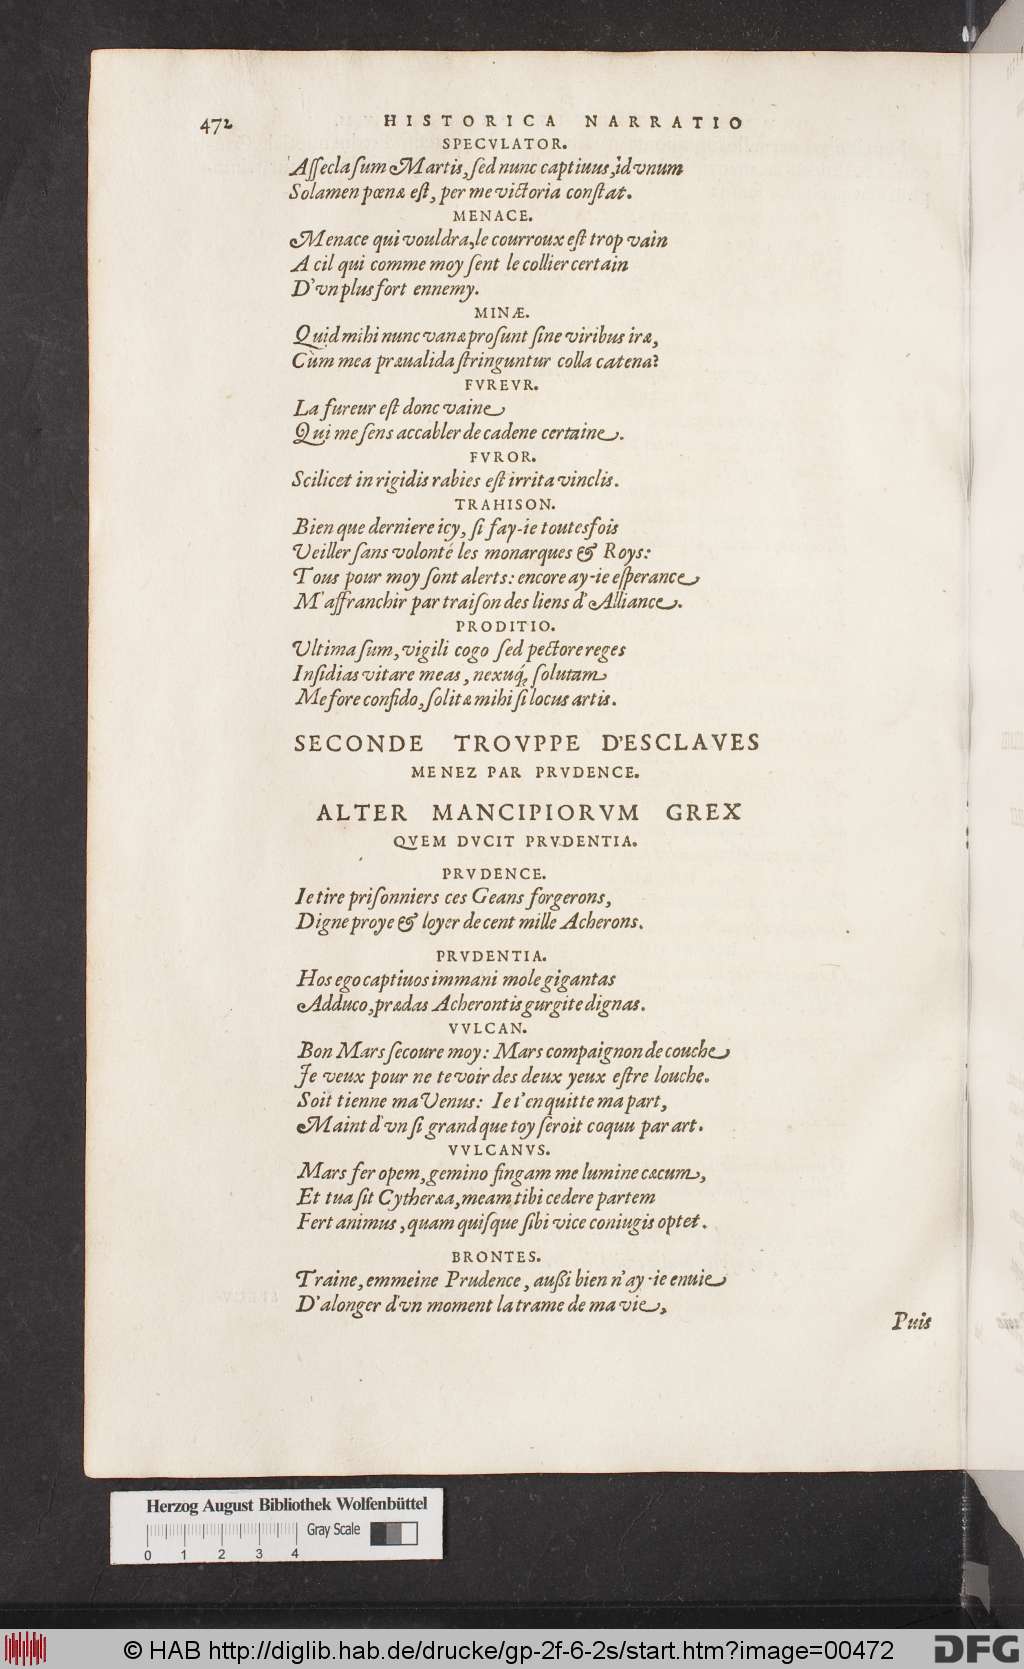 472 HISTORICA NARRATIO
SPECVLATOR.
Aſſecla ſum Martis, ſed nunc captiuus, id vnum
Solamen pœnæ eſt, per me victoria conſtat.
MENACE.
Menace qui vouldra, le courroux eſt trop vain
A cil qui comme moy ſent le collier certain
D'vn plus fort ennemy.
MINÆ.
Quid mihi nunc vanæ proſunt ſine viribus iræ,
Cùm mea præualida ſtringuntur colla catena?
FVREVR.
La fureur eſt donc vaine
Qui me ſens accabler de cadene certaine.
FVROR.
Scilicet in rigidis rabies eſt irrita vinclis.
TRAHISON.
Bien que derniere icy, ſi fay-ie toutesfois
Veiller ſans volonté les monarques & Roys:
Tous pour moy ſont alerts: encore ay-ie eſperance
M'affranchir par traiſon des liens d'Alliance.
PRODITIO.
Vltima ſum, vigili cogo ſed pectore reges
Inſidias vitare meas, nexuq́; ſolutam
Me fore confido, ſolitæ mihi ſi locus artis.
SECONDE TROVPPE D'ESCLAVES
MENEZ PAR PRVDENCE.
ALTER MANCIPIORVM GREX
QVEM DVCIT PRVDENTIA.
PRVDENCE.
Ie tire priſonniers ces Geans forgerons,
Digne proye & loyer de cent mille Acherons.
PRVDENTIA.
Hos ego captiuos immani mole gigantas
Adduco, prædas Acherontis gurgite dignas.
VVLCAN.
Bon Mars ſecoure moy: Mars compaignon de couche
Je veux pour ne te voir des deux yeux eſtre louche.
Soit tienne ma Venus: Ie t'en quitte ma part,
Maint d'vn ſi grand que toy ſeroit coquu par art.
VVLCANVS.
Mars fer opem, gemino fingam me lumine cæcum,
Et tua ſit Cytheræa, meam tibi cedere partem
Fert animus, quam quiſque ſibi vice coniugis optet.
BRONTES.
Traine, emmeine Prudence, außi bien n'ay-ie enuie
D'alonger d'vn moment la trame de ma vie,
Puis
Herzog August Bibliothek Wolfenbüttel
Gray Scale
0 1 2 3 4
© HAB http://diglib.hab.de/drucke/gp-2f-6-2s/start.htm?image=00472
DFG